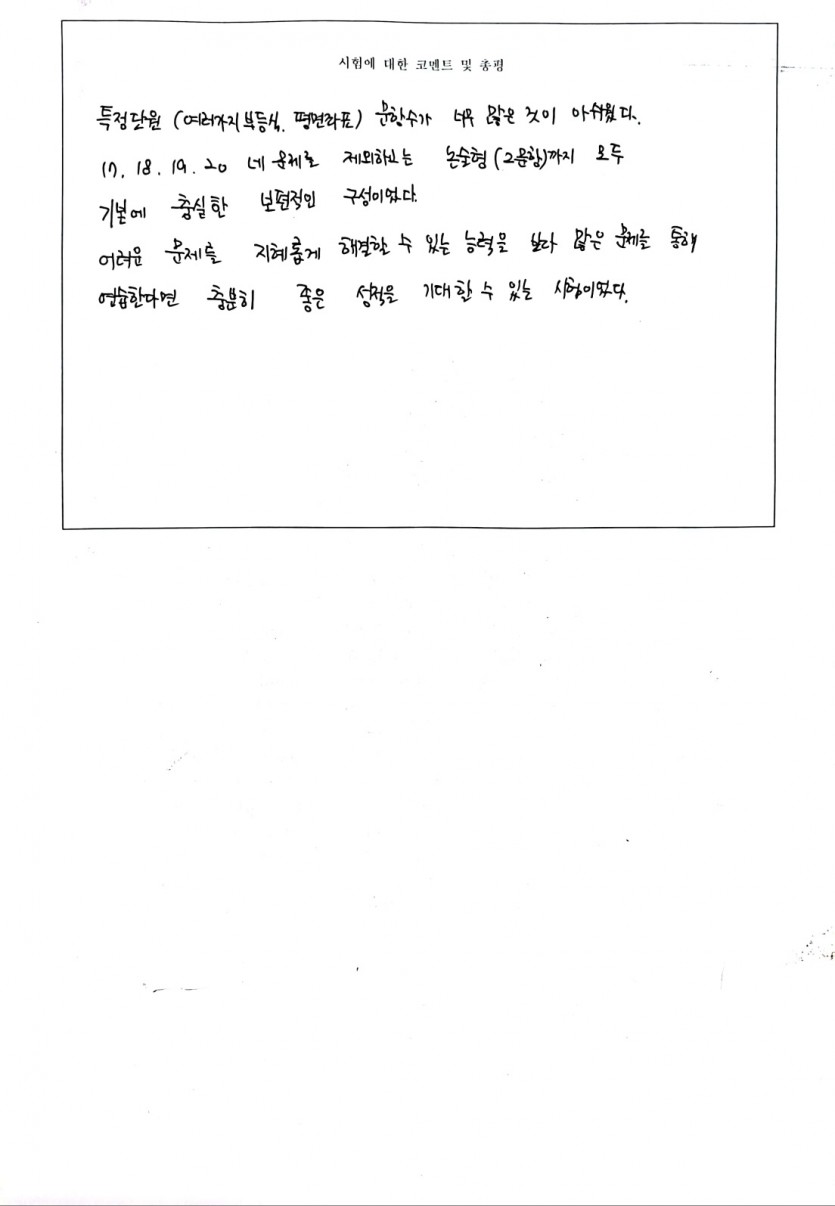 시험에 대한 코멘트 및 총평
특정단원 (여러가지부등식. 평면좌표) 문항수가 너무 많은 것이 아쉬웠다.
17. 18. 19. 20 네 문제를 제외하고는 논술형(2문항)까지 모두
기본에 충실한 보편적인 구성이었다.
어려운 문제를 지혜롭게 해결할 수 있는 능력을 보다 많은 문제를 통해
연습한다면 충분히 좋은 성적을 기대할 수 있는 시험이었다.